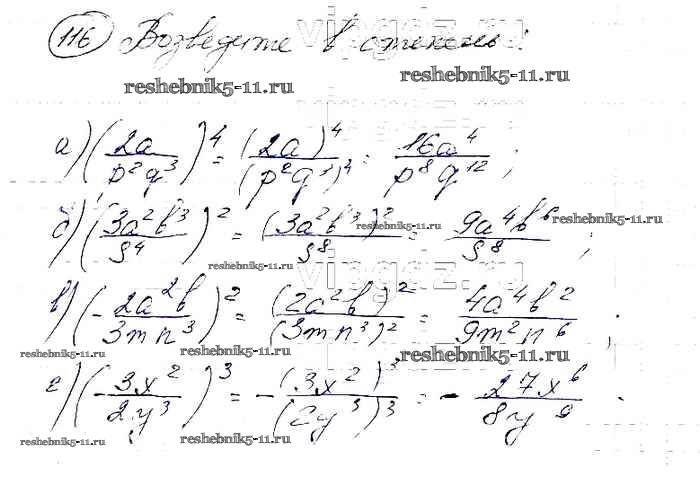 116 Возведите в степень:
vipgdz.ru
reshebnik5-11.ru reshebnik5-11.ru
vipgdz.ru
а) (2a / p²q³)⁴ = (2a)⁴ / (p²q³)⁴ = 16a⁴ / p⁸q¹² ;
б) (3a²b³ / s⁴)² = (3a²b³)² / s⁸ = 9a⁴b⁶ / s⁸ ;
reshebnik5-11.ru reshebnik5-11.ru
reshebnik5-11.ru
vipgdz.ru
в) (- 2a²b / 3mn³)² = (2a²b)² / (3mn³)² = 4a⁴b² / 9m²n⁶ ;
reshebnik5-11.ru reshebnik5-11.ru reshebnik5-11.ru
г) (- 3x² / 2y³)³ = - (3x²)³ / (2y³)³ = - 27x⁶ / 8y⁹ .
reshebnik5-11.ru reshebnik5-11.ru